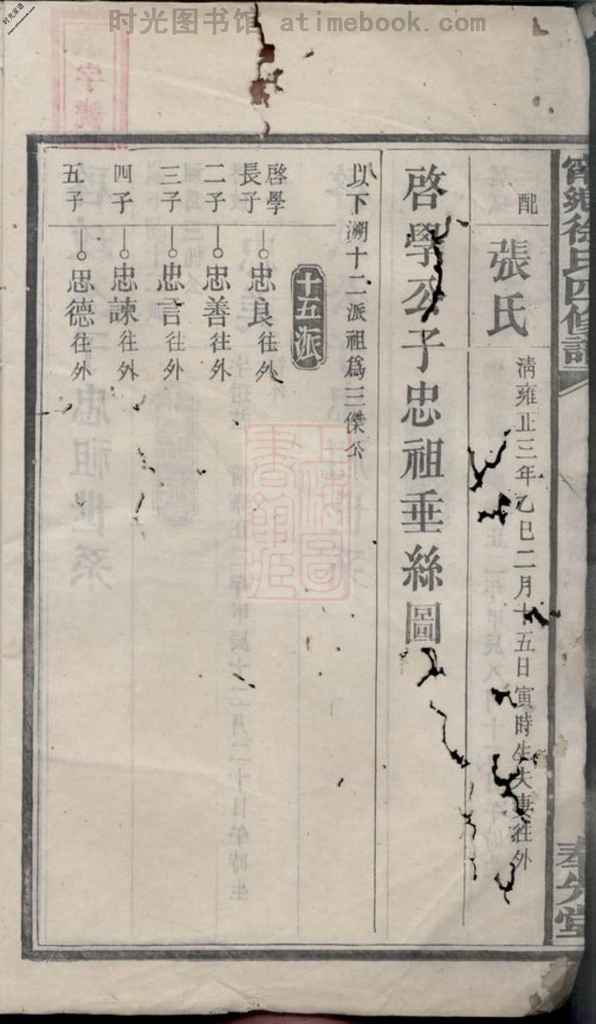 时光图书馆 atimebook.com
配
張氏
清雍正三年乙巳二月十五日寅時生夫妻往外
啓學公子忠祖垂絲圖
以下溯十二派祖爲三傑公
十五派
啓學
長子
忠良往外
二子
忠善往外
三子
忠言往外
四子
忠諫往外
五子
思德往外
徐氏四修譜
堂